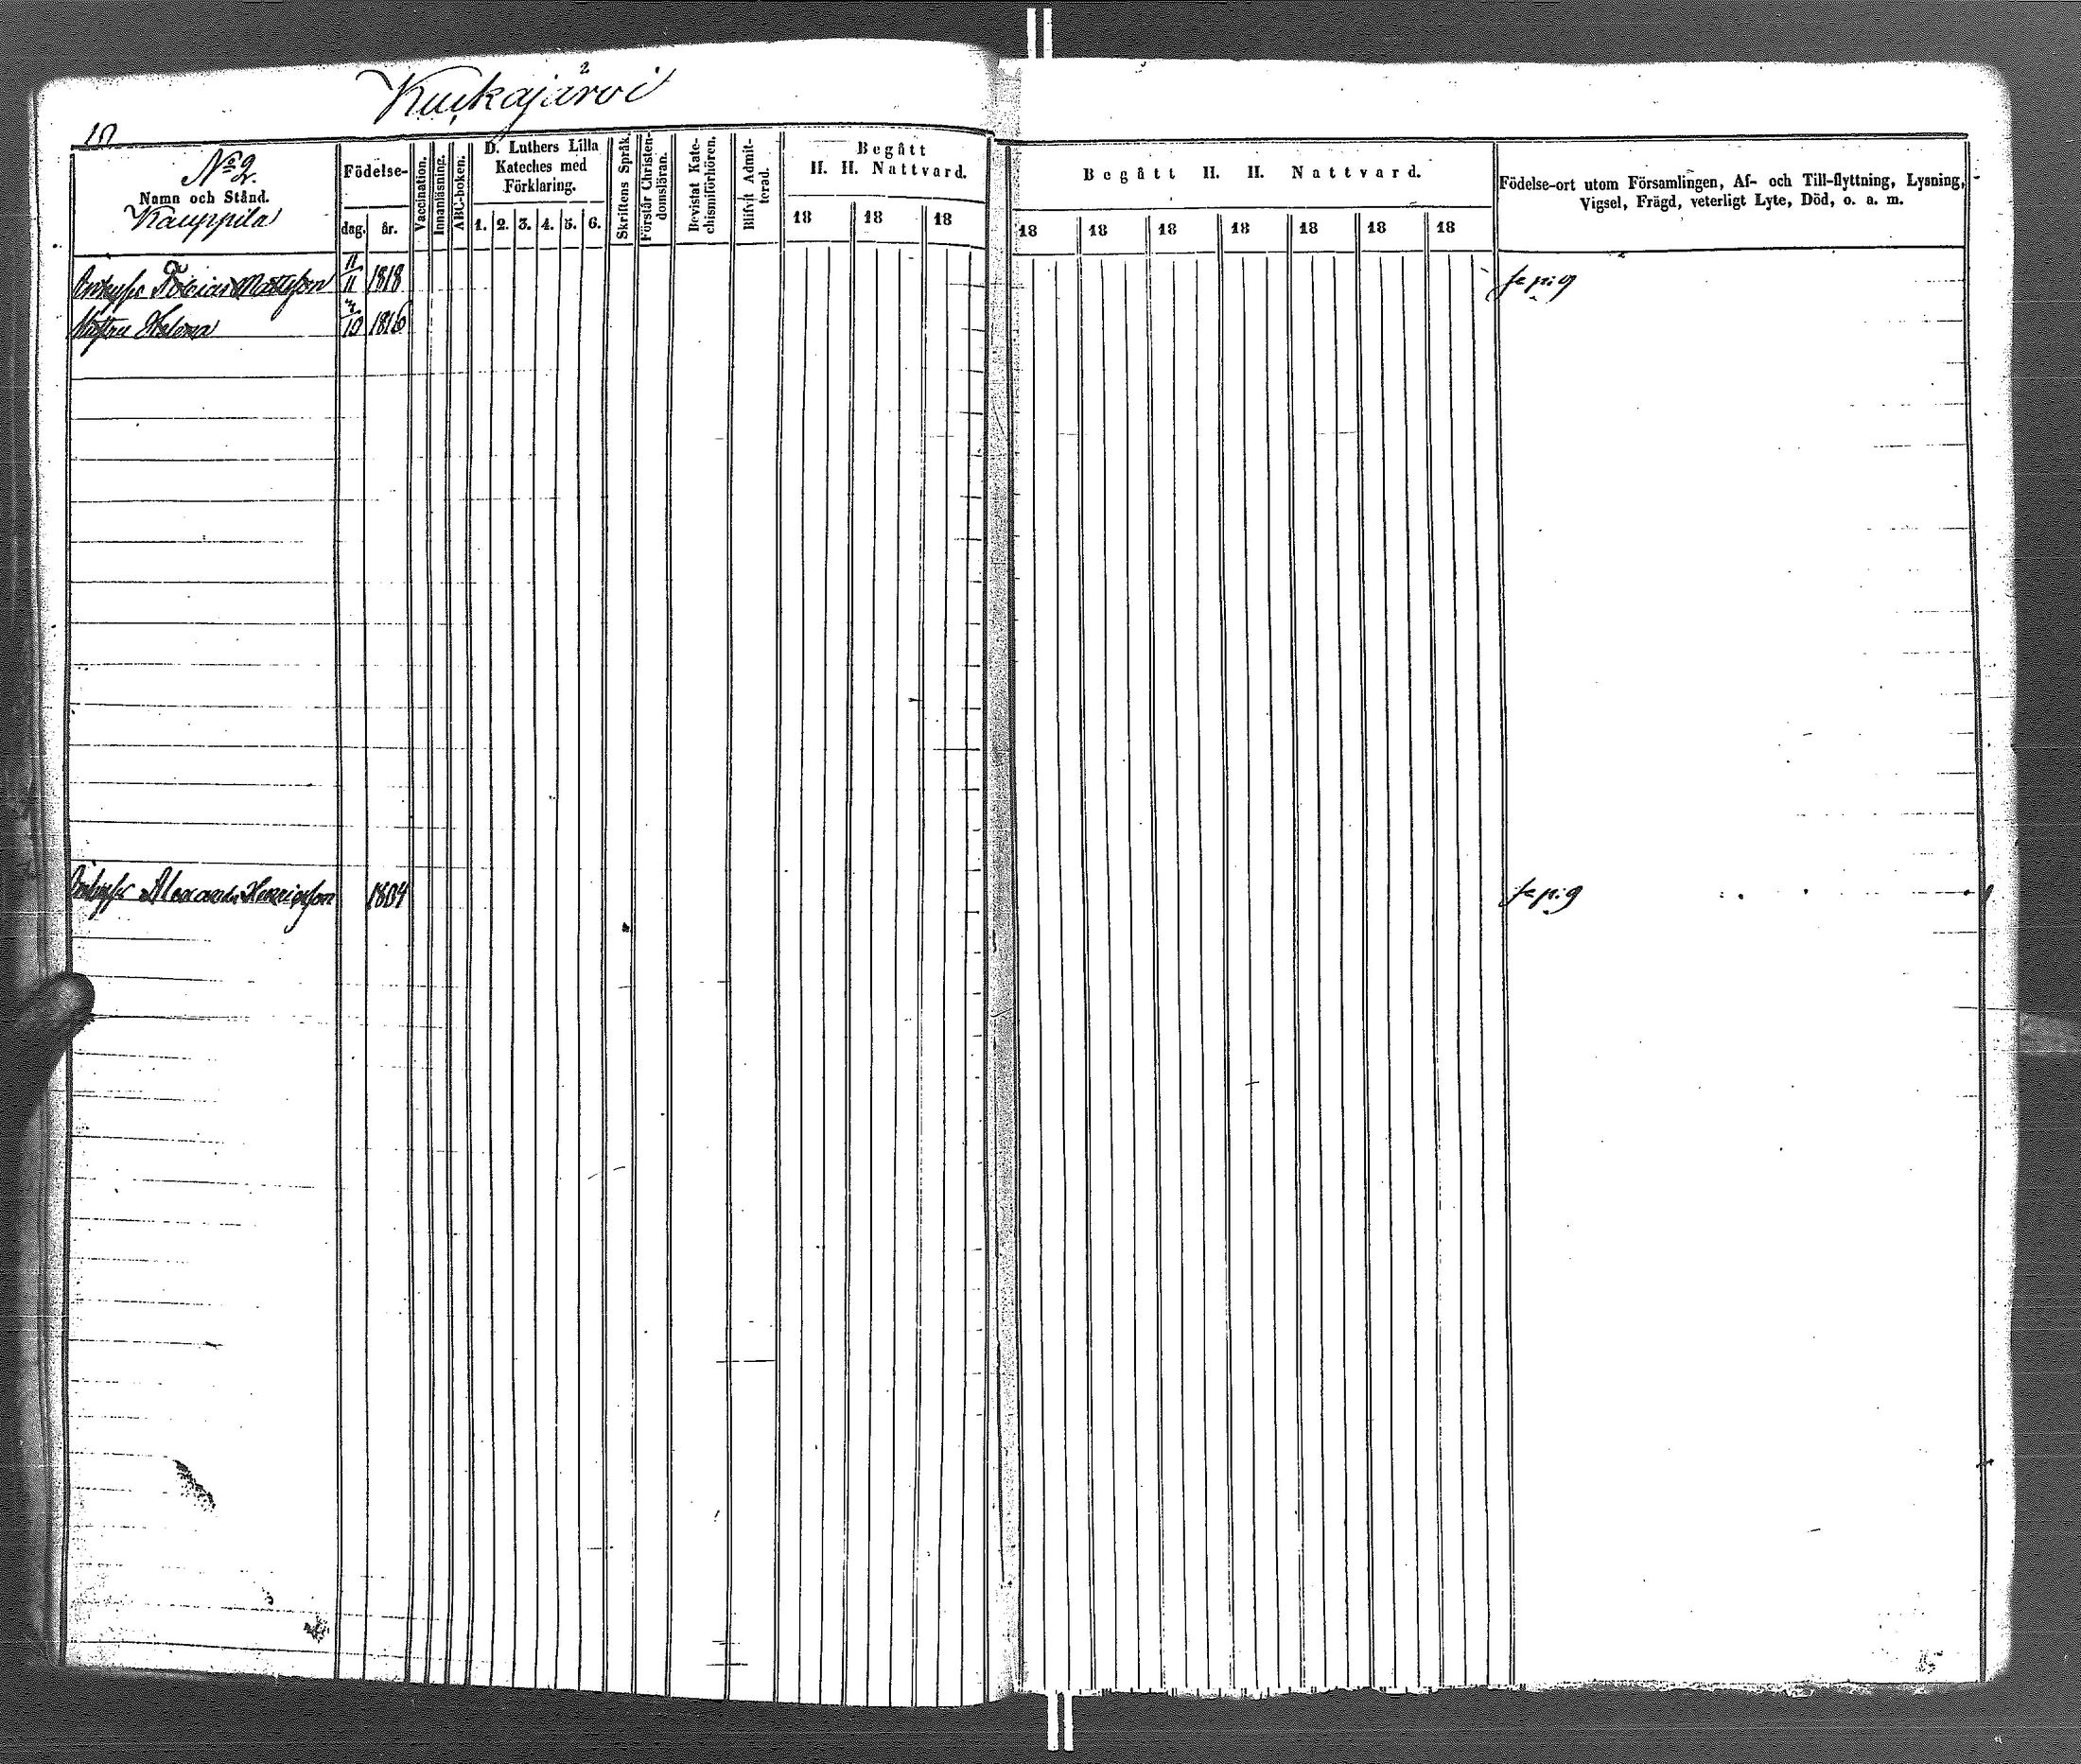 2
Kuckajärvi
10
No 2.
Namn och Stånd.
Kauppila
Födelse-
dag.
år.
Vaccination.
Innanläsning.
ABC-boken.
D. Luthers Lilla
Kateches med
Förklaring.
1. 2. 3. 4. 5. 6.
Skriftens Språk.
Förstår Christen-
domsläran.
Bevistat Kate-
chismiförhören.
Blifvit Admit-
terad.
Begått
H. H. Nattvard.
18 18 18
Begått H. H. Nattvard.
18 18 18 18 18 18 18
Födelse-ort utom Församlingen, Af- och Till-flyttning, Lysning,
Vigsel, Frägd, veterligt Lyte, Död, o. a. m.
Tobias Mattsson 11/11 1818
Hustru Helena 10 1816
Alexander Henricsson 1804
85